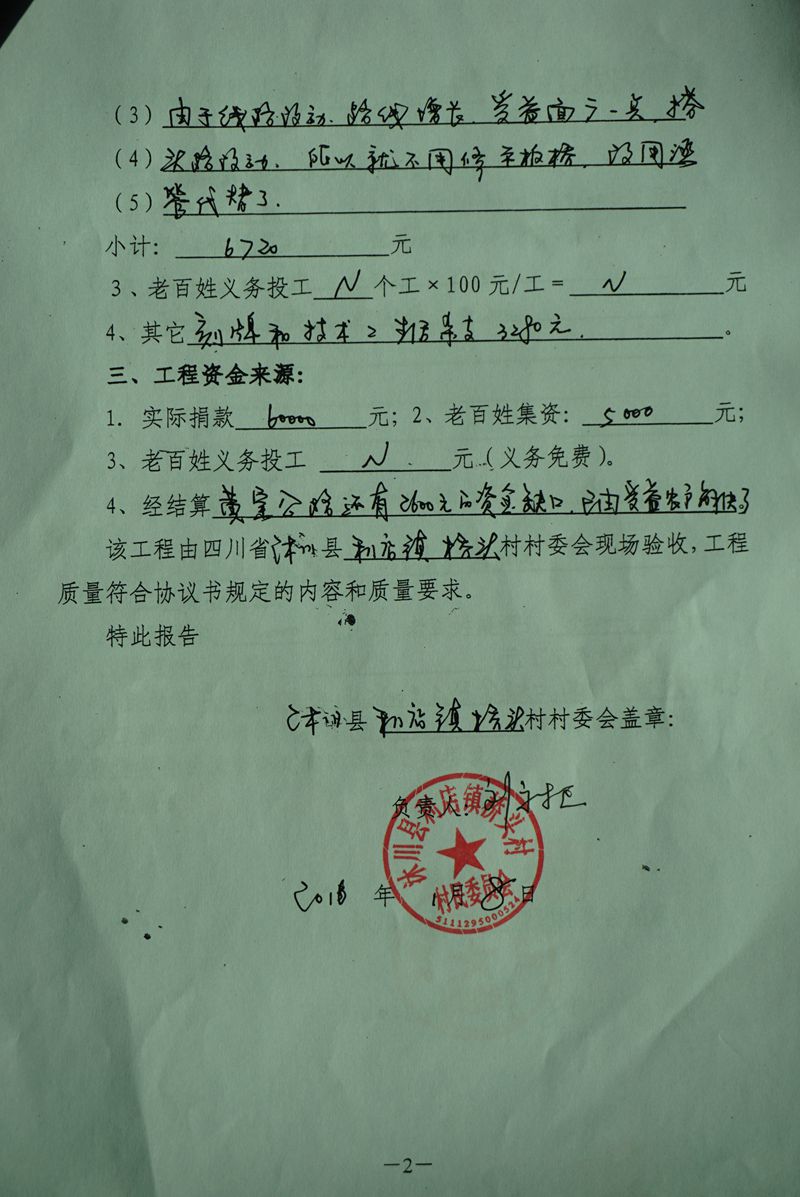 (3) 由于线路改动．路线增长．受益面广一点．搭
(4) 头路改动．所以就不用修平板桥．改用涵
(5) 管代替了．
小计： 6720 元
3、老百姓义务投工 N 个工×100元/工= N 元
4、其它 刻牌和技术工 3280元． 。
三、工程资金来源：
1. 实际捐款 60000 元；2、老百姓集资： 5000 元；
3、老百姓义务投工 N 元（义务免费）。
4、经结算 黄家公路还有2600元的资金缺口，已由受益农户解决了
该工程由四川省沐川县 利店镇 桥头村村委会现场验收，工程
质量符合协议书规定的内容和质量要求。
特此报告
沐川县 利店镇 桥头村村委会盖章：
负责人：刘
沐川县利店镇桥头村
村民委员会
5111295000524
201 年 1月8日
—2—